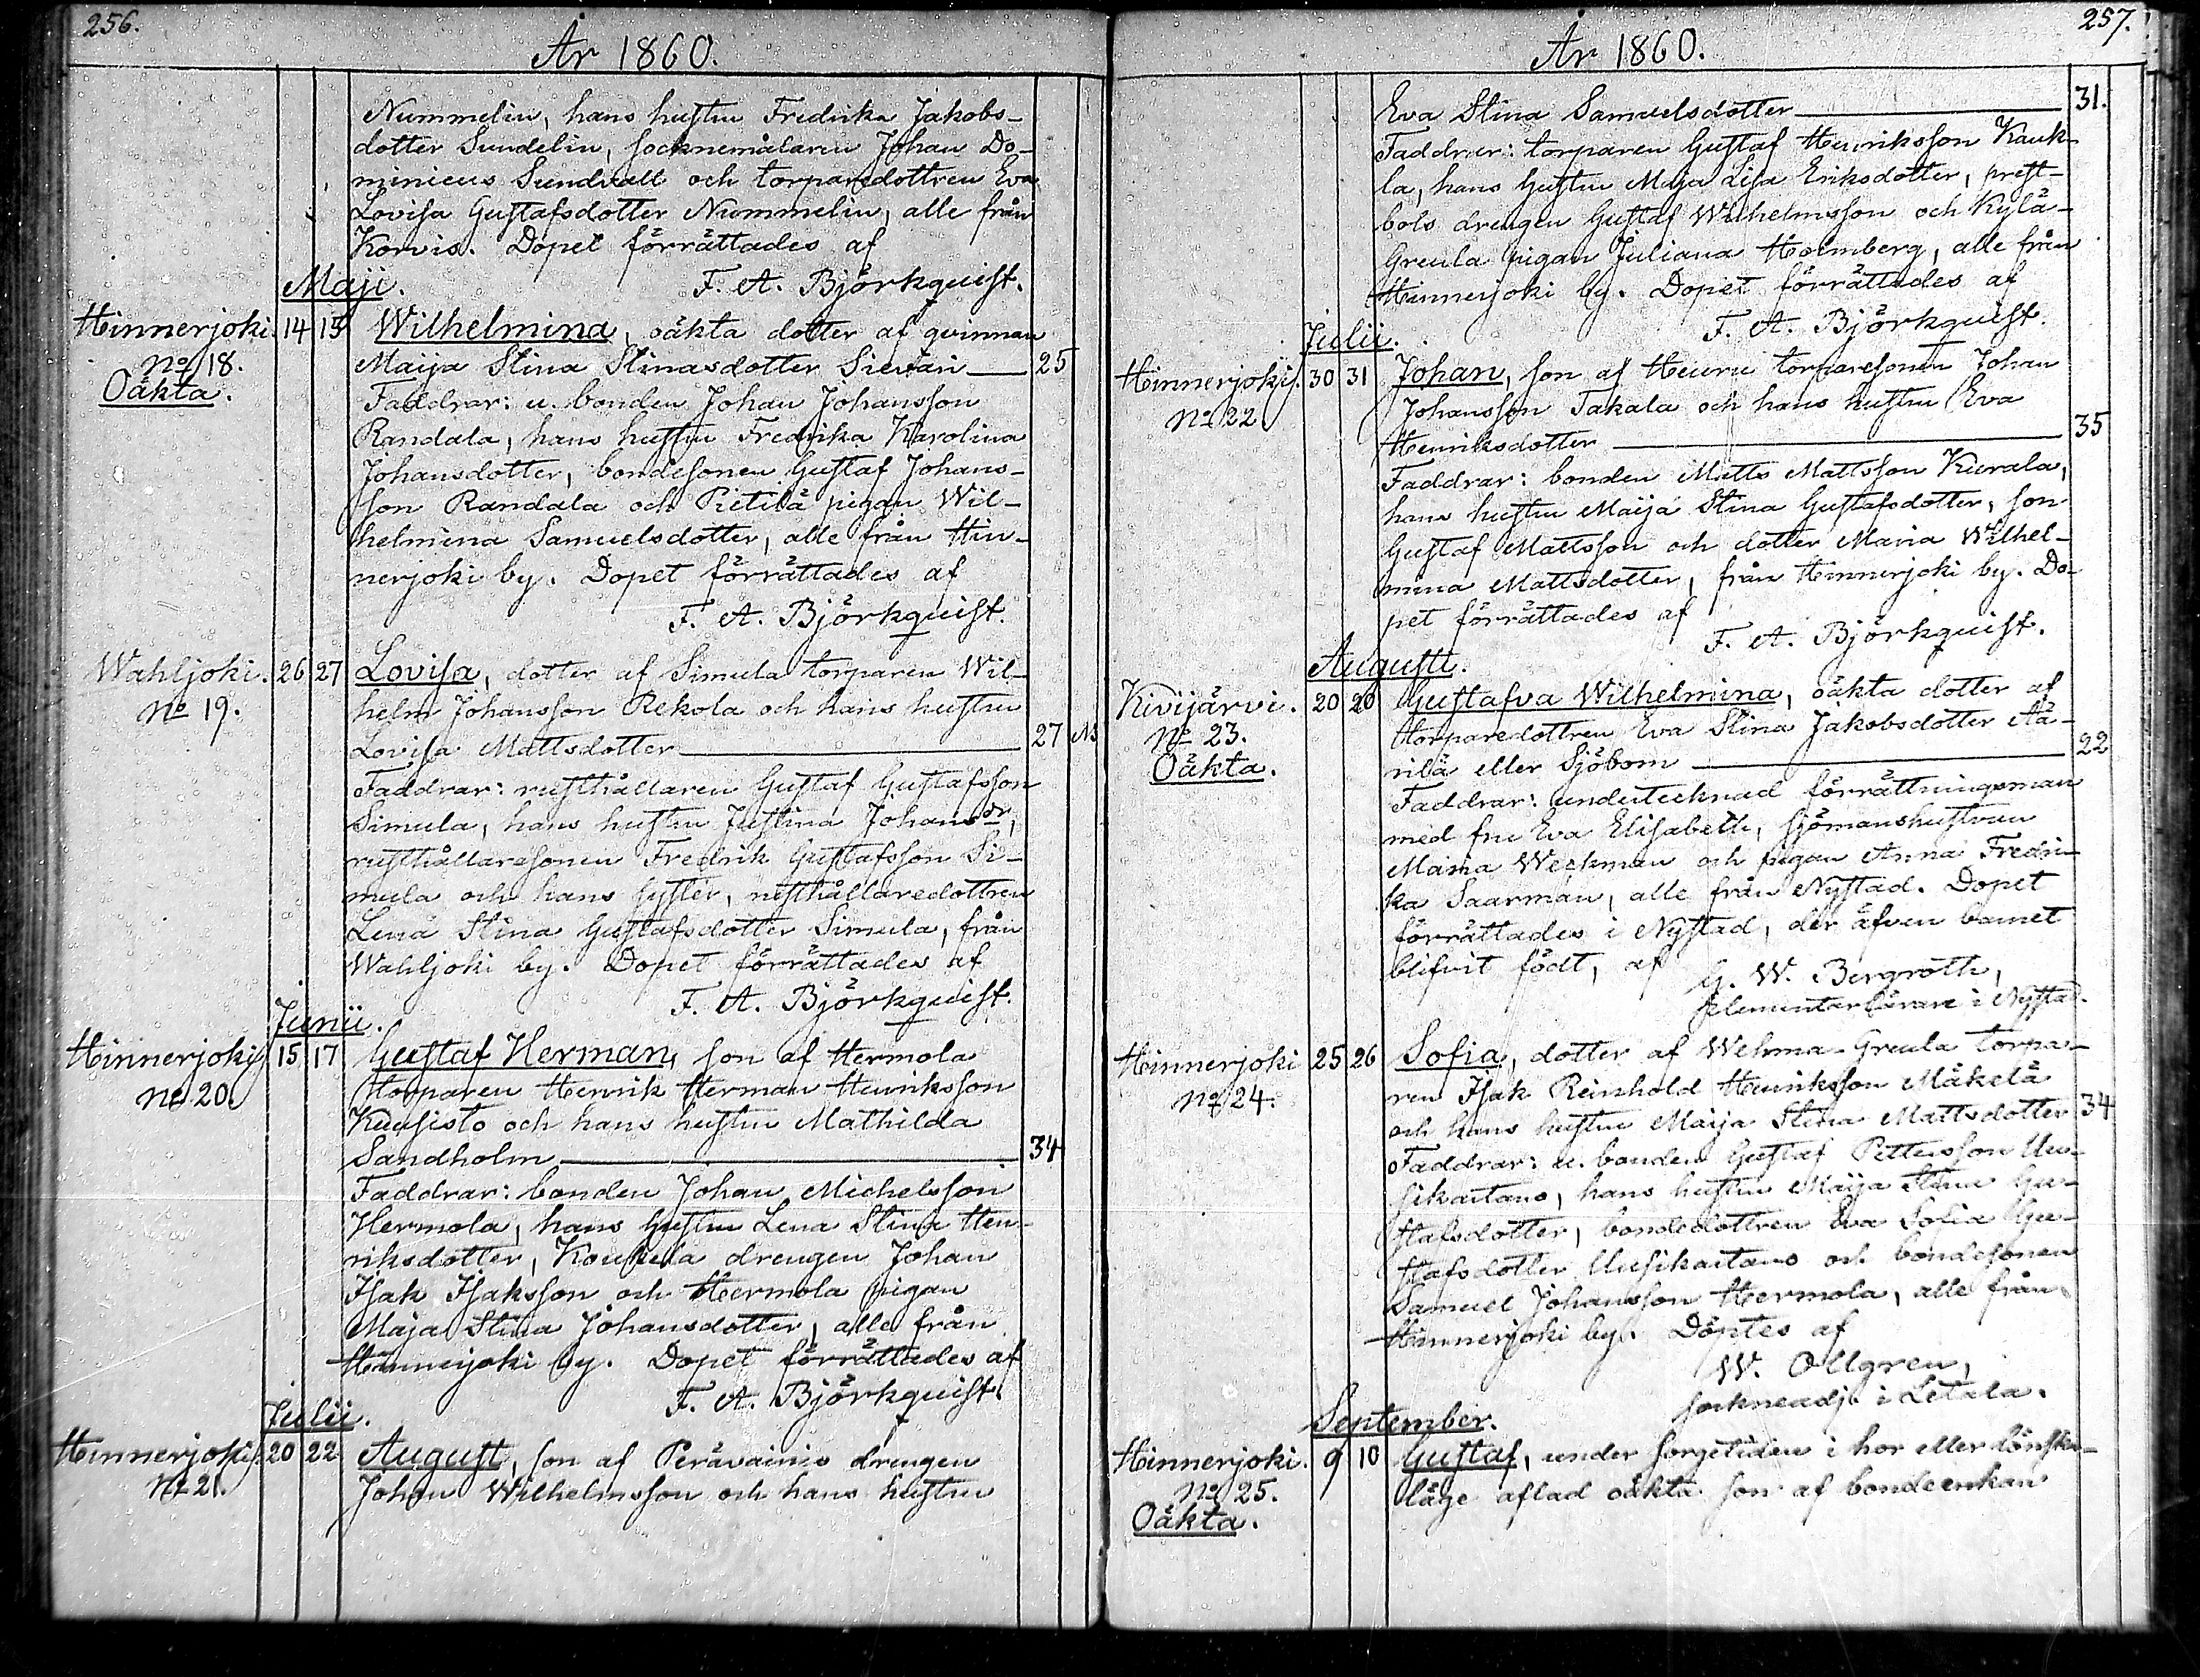 256.
År 1860.
Nummelin, hans hustru Fredrika Jakobs-
dotter Sundelin, socknemålaren Johan Do-
minicus Sundvall och torparedottren Eva
Lovisa Gustafsdotter Nummelin, alle från
Korvis. Dopet förrättades af
F. A. Björkquist.
Maji.
Hinnerjoki. 14 15 Wilhelmina, oäkta dotter af qvinnan
No 18. Maija Stina Stinasdotter 25
Oäkta. Faddrar: u. bonden Johan Johansson
Randala, hans hustru Fredrika Karolina
Johansdotter, bondesonen Gustaf Johans-
son Randala och Pietilä pigan Wil-
helmina Samuelsdotter, alle från Hin-
nerjoki by. Dopet förrättades af
F. A. Björkquist.
Wahljoki. 26 27 Lovisa, dotter af Simula torparen Wil-
No 19. helm Johansson Rekola och hans hustru
Lovisa Mattsdotter 27
Faddrar: rusthållaren Gustaf Gustafsson
Simula, hans hustru Justina Johansdr,
rusthållaresonen Fredrik Gustafsson Si-
mula och hans syster, rusthållaredottren
Lena Stina Gustafsdotter Simula, från
Wahljoki by. Dopet förrättades af
F. A. Björkquist.
Junii.
Hinnerjoki 15 17 Gustaf Herman, son af Hermola
No 20. torparen Henrik Herman Henriksson
Kuusisto och hans hustru Mathilda
Sandholm 34
Faddrar: bonden Johan Michelsson
Hermola, hans hustru Lena Stina Hen-
riksdotter, Koukela drengen Johan
Isak Isaksson och Hermola pigan
Maja Stina Johansdotter, alle från
Hinnerjoki by. Dopet förrättades af
F. A. Björkquist.
Julii.
Hinnerjoki. 20 22 August, son af Perävainio drengen
No 21. Johan Wilhelmsson och hans hustru
257.
År 1860.
Eva Stina Samuelsdotter 31.
Faddrar: torparen Gustaf Henriksson Kauk-
la, hans hustru Maja Lisa Eriksdotter, prest-
bols drengen Gustaf Wilhelmsson och Kylä-
Greula pigan Juliana Holmberg, alle från
Hinnerjoki by. Dopet förrättades af
F. A. Björkquist.
Julii.
Hinnerjoki. 30 31 Johan, son af torparesonen Johan
No 22. Johansson Takala och hans hustru Eva
Henriksdotter 35
Faddrar: bonden Matts Mattsson Kurala,
hans hustru Maija Stina Gustafsdotter, son
Gustaf Mattsson och dotter Maria Wilhel-
mina Mattsdotter, från Hinnerjoki by. Do-
pet förrättades af
F. A. Björkquist.
Augusti.
Kivijärvi. 20 20 Gustafva Wilhelmina, oäkta dotter af
No 23. torparedottren Eva Stina Jakobsdotter Aä-
Oäkta. rilä eller Sjöbom 22
Faddrar: undertecknad förrättningsman
med fru Eva Elisabeth, sjömanshustrun
Maria Weckman och pigan Anna Fredri-
ka Saarman, alle från Nystad. Dopet
förrättades i Nystad, der äfven barnet
blifvit födt, af
G. W. Bergroth,
elementarlärare i Nystad.
Hinnerjoki 25 26 Sofia, dotter af Wehma-Greula torpa-
No 24. ren Isak Reinhold Henriksson Mäkelä
och hans hustru Maija Stina Mattsdotter 34
Faddrar: u. bonden Gustaf Pettersson Uu-
sikartano, hans hustru Maija Stina Gu-
stafsdotter, bondedottren Eva Sofia Gu-
stafsdotter Uusikartano och bondesonen
Samuel Johansson Hermola, alle från
Hinnerjoki by. Döptes af
W. Ollgren,
sockneadj. i Letala.
September.
Hinnerjoki. 9 10 Gustaf, under sorgetiden i hor eller lönska-
No 25. läge aflad oäkta son af bondeenkan
Oäkta.